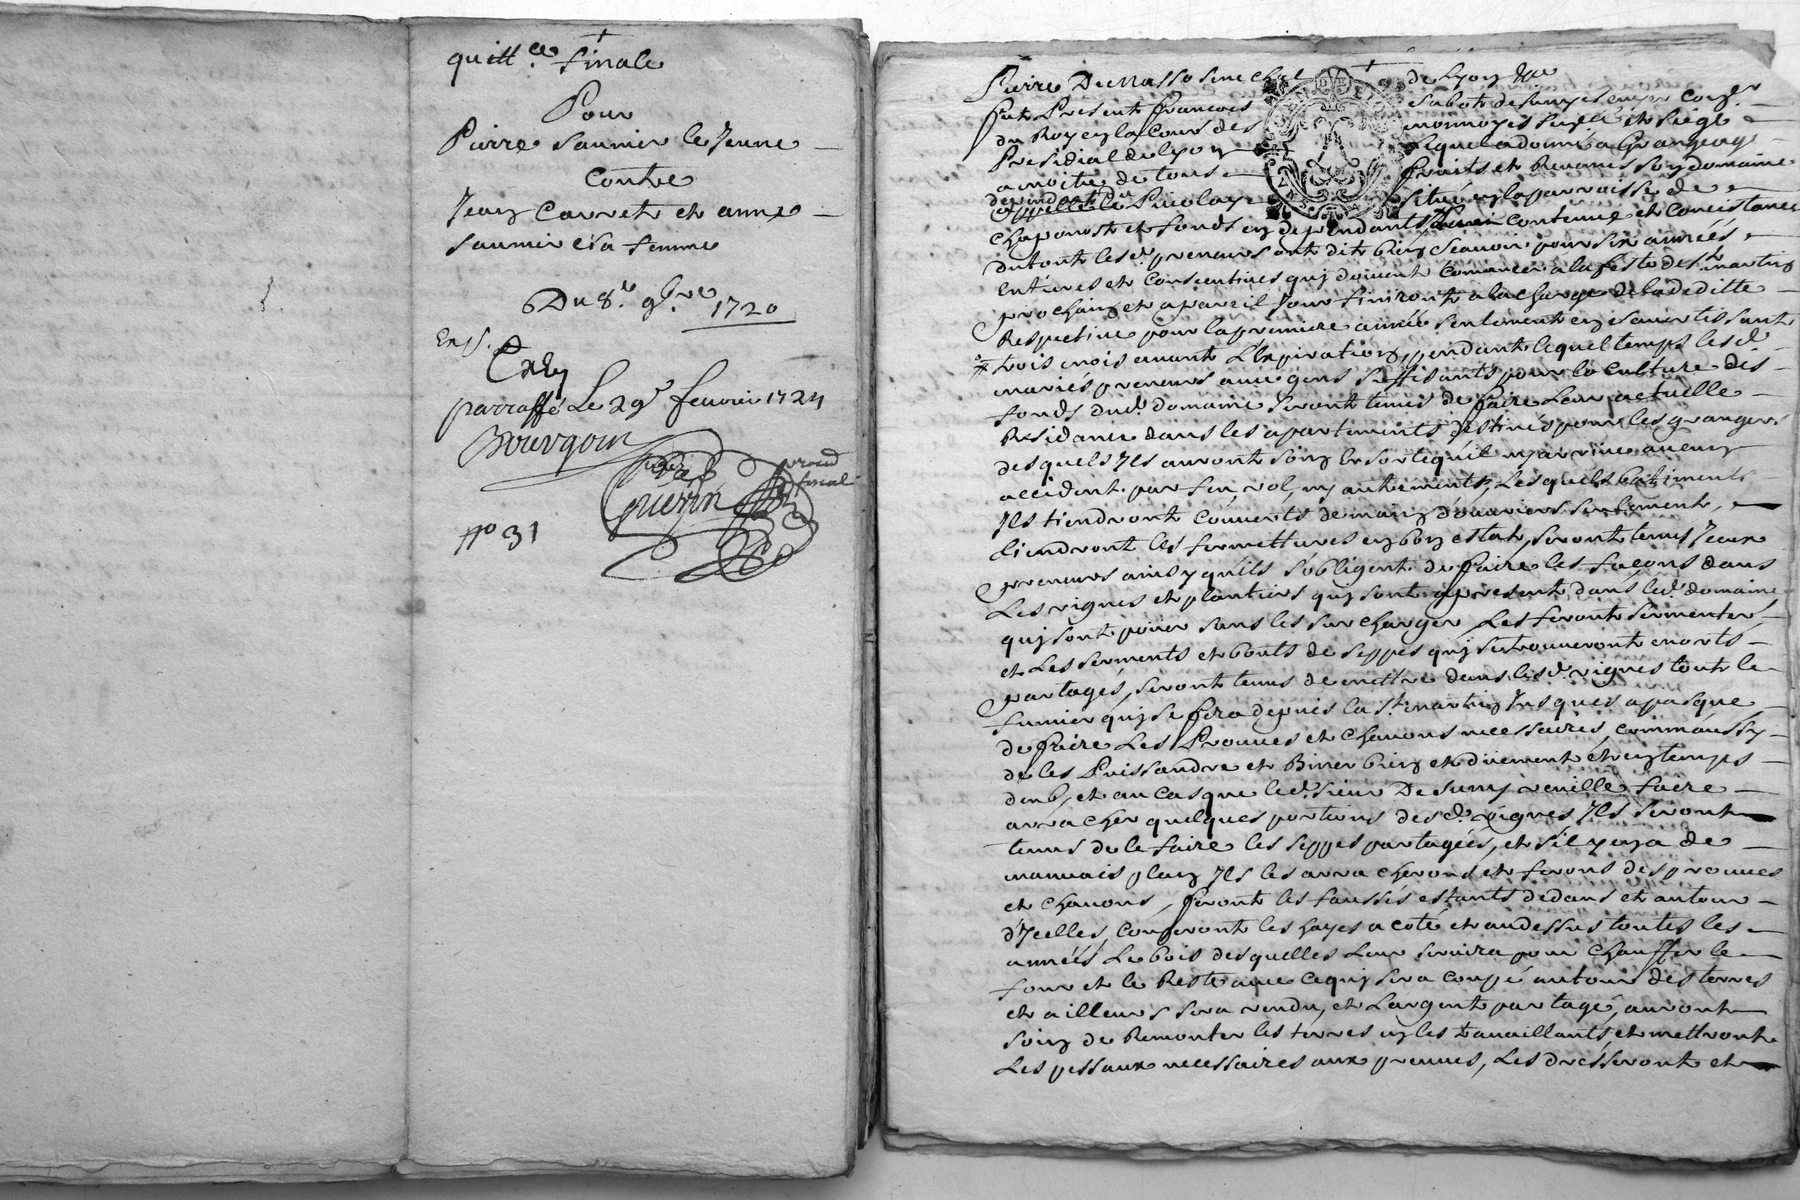 quitt.ce finale
Pour
Pierre Saunier le Jeune
Contre
Jean Carret et anne
Saunier sa femme
Du 8.e 9bre 1720
Exp.
parraffé Le 29e feurier 1724
Bourgoin
Guerin
procu
fiscal
No 31
Pierre Dumas Senechal de Lyon
fut Present francois
du Roy en la Cour des monnoyes et siege
Presidial de lyon lequel a donné a Grangeage
a moitié de tous fruits et Reuenus son domaine
appellé Le situé en la parroisse de
Chaponost et fonds en dependants contenue et Consistance
du tout lesd. preneurs ont dit bien scauoir pour six années
entieres et Consecutiues qui doiuent Commancer a la feste de St martin
prochain et a pareil Jour finiront a la charge de la deditte
Respectiue pour la premiere année seulement en s'auertissant
trois mois auant L'Expiration, pendant lequel temps lesd.
mariés preneurs auec gens suffisants pour la culture des
fonds dud. domaine seront tenus de faire Leur actuelle
Residance dans les apartements destinés pour les grangers
desquels Ils auront soin En sorte qu'il n'y arriue aucun
accident par feu, vol, ny autrements, Lesquels batiments
Ils tiendront Couuerts de main d'ouuriers seulement,
tiendront les fermettures en bon estat, seront tenus Iceux
preneurs ainsy qu'ils s'obligent de faire les facons dans
Les vignes et plantiers qui sont apresent dans led. domaine
qui sont pour sans les surcharger, Les feront sermenter,
et Les serments et bouts de seppes qui se trouueront morts
partagés, seront tenus de mettre dans lesd. vignes tout le
fumier qui se fera depuis la St. martin Jusques a pasque
de faire Les Prouues et chauons necessaires, comm'aussy
de les Puissandre et Biner bien et düement et en temps
deub, et au cas que led. sieur De Sumy veuille faire
arracher quelques portions desd. vignes Ils seront
tenus de le faire les seppes partagées, et s'il y en a de
mauuais plan Ils les arracheront et feront des prouues
et chauons, feront les faussés estants dedans et autour
d'Icelles, couperont les hayes a coté et au dessus toutes les
années Le bois desquelles Leur seruira pour chauffer le
four et le Reste auec ce qui sera coupé autour des terres
et ailleurs sera vendu, et L'argent partagé, auront
soin de Remonter les terres en les trauaillants, et mettront
Les pessaux necessaires aux preuues, Les dresseront et